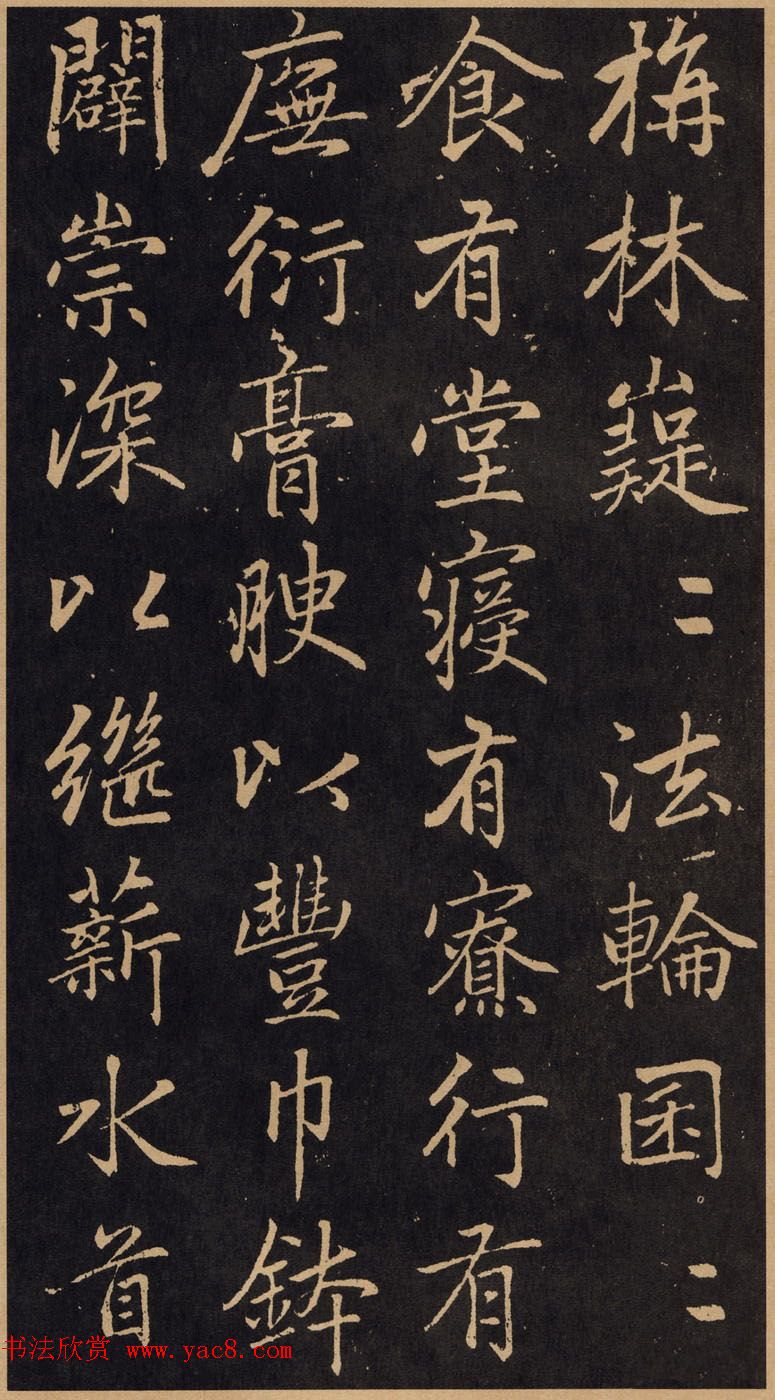 栴林嶷〻法輪囷〻
食有堂寢有寮行有
廡衍膏腴以豐巾鉢
闢崇深以繼薪水首
书法欣赏 www.yac8.com